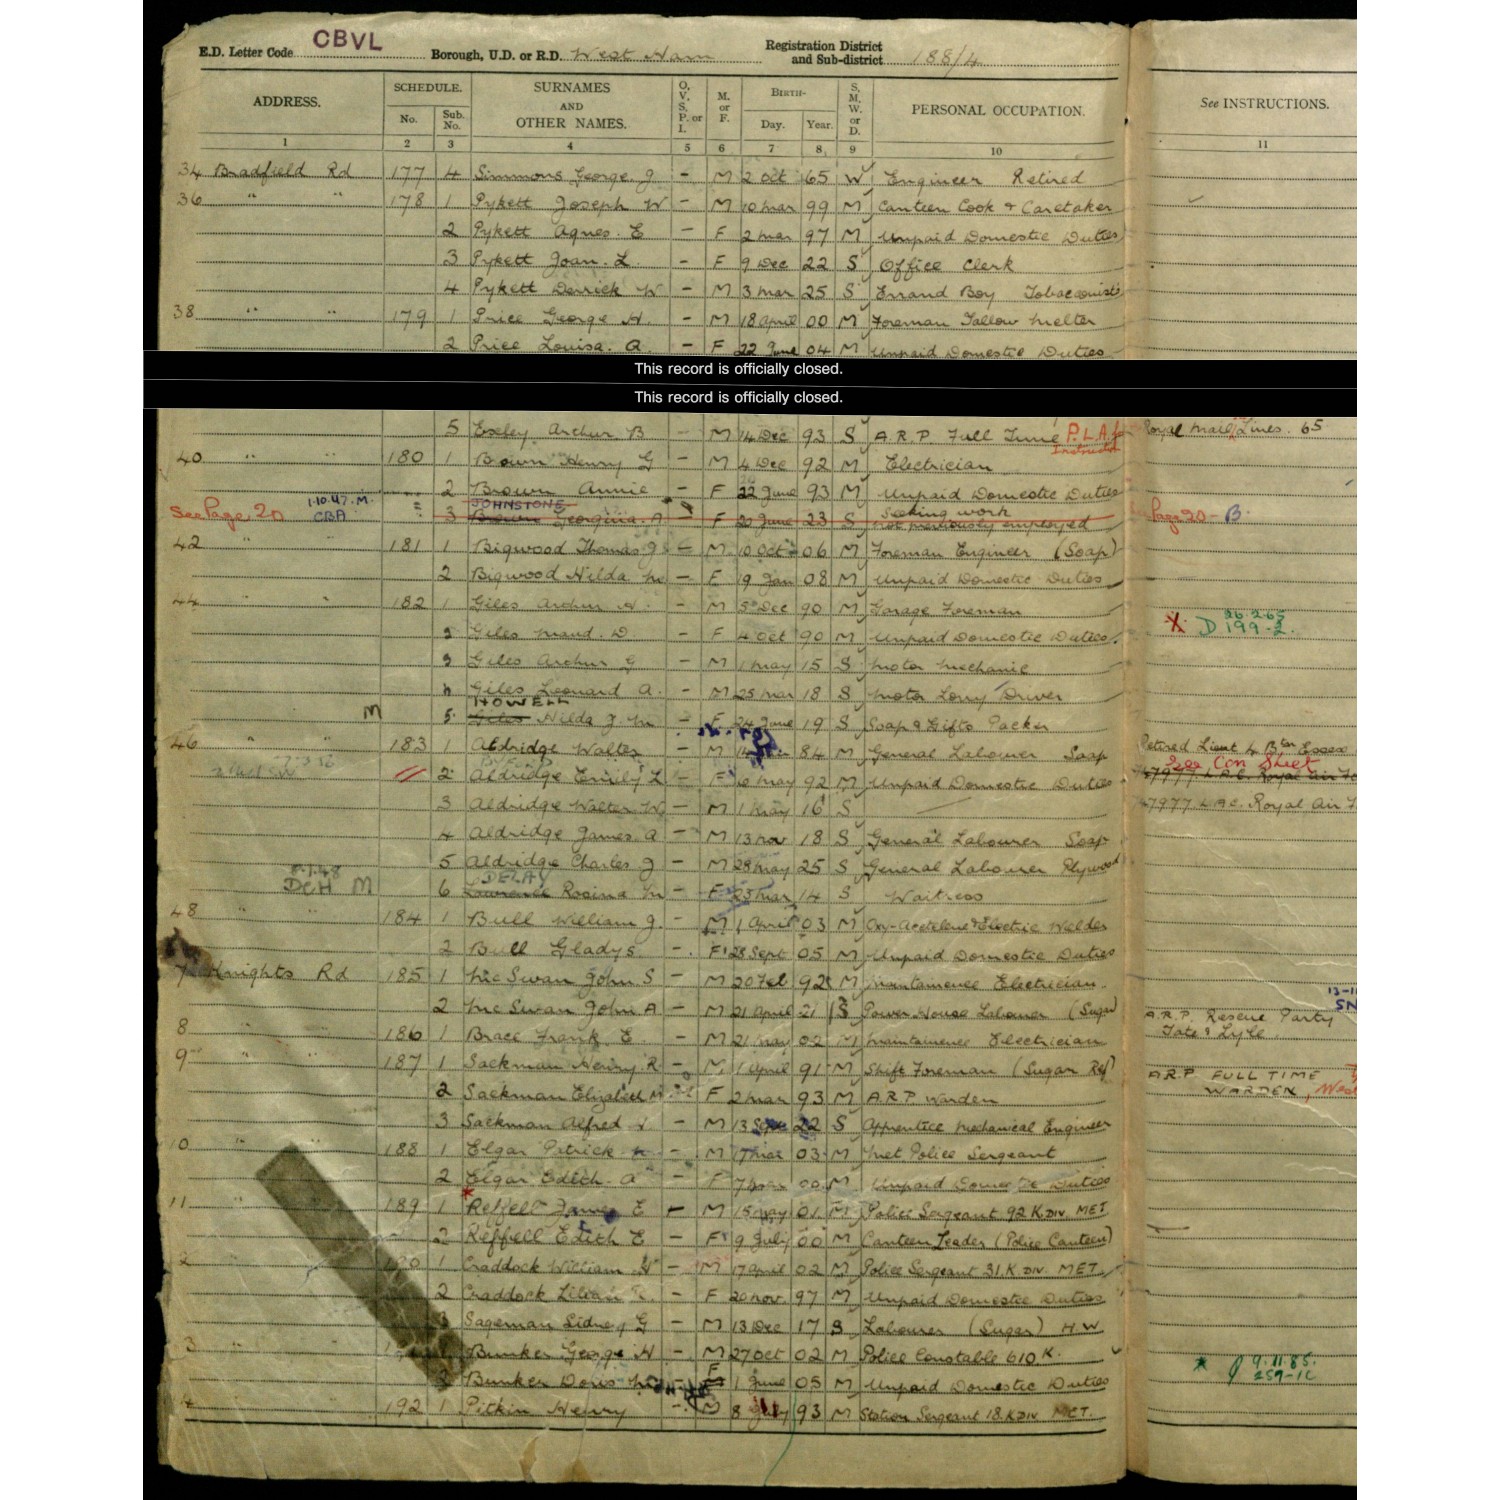 E.D. Letter Code CBVL Borough, U.D. or R.D. West Ham Registration District and Sub-district 188/4
ADDRESS. SCHEDULE. No. Sub. No. SURNAMES AND OTHER NAMES. O, V, S, P. or I. M. or F. BIRTH- Day. Year. S, M, W. or D. PERSONAL OCCUPATION. See INSTRUCTIONS.
1 2 3 4 5 6 7 8 9 10 11
34 Bradfield Rd 177 4 Simmons George. J - M 2 Oct 65 W Engineer Retired
36 " " 178 1 Pykett Joseph W - M 10 Mar 99 M Canteen Cook & Caretaker
2 Pykett Agnes. E - F 2 Mar 97 M Unpaid Domestic Duties
3 Pykett Joan. L - F 9 Dec 22 S Office Clerk
4 Pykett Derrick W - M 3 Mar 25 S Errand Boy Tobacconists
38 " " 179 1 Price George H. - M 18 April 00 M Foreman Tallow Melter
2 Price Louisa. A. - F 22 June 04 M Unpaid Domestic Duties
This record is officially closed.
This record is officially closed.
5 Exeley Arthur B - M 14 Dec 93 S A.R.P Full Time P.L.A. Instructor Royal Mail Lines. 65
40 " " 180 1 Brown Henry G - M 4 Dec 92 M Electrician
2 Brown Annie - F 22 June 93 M Unpaid Domestic Duties
See Page 20 1.10.47.M. CBA JOHNSTONE
3 Brown Georgina. A - F 20 June 23 S Seeking work not previously employed Page 20 - B.
42 181 1 Bigwood Thomas J - M 10 Oct 06 M Foreman Engineer (Soap)
2 Bigwood Hilda M - F 19 Jan 08 M Unpaid Domestic Duties
44 " 182 1 Giles Arthur H. - M 5 Dec 90 M Garage Foreman
2 Giles Maud. D - F 4 Oct 90 M Unpaid Domestic Duties. X D 26.2.65 199-2.
3 Giles Arthur G - M 1 May 15 S Motor Mechanic
4 Giles Leonard A. - M 25 Mar 18 S Motor Lorry Driver
HOWELL
M 5 Giles Hilda J. M - F 24 June 19 S Soap & Gifts Packer
46 " " 183 1 Aldridge Walter - M 14 84 M General Labourer Soap Retired Lieut 4 Btn Essex
See Con Sheet
2 Aldridge Emily L - F 6 May 92 M Unpaid Domestic Duties 47977 L.A.C. Royal Air
3 Aldridge Walter W - M 1 May 16 S 47977 L.A.C. Royal Air F
4 Aldridge James. A - M 13 Nov 18 S General Labourer Soap
5 Aldridge Charles J - M 28 May 25 S General Labourer Plywood
8.1.48 DCH M DELAY
6 Lawrence Rosina M - F 23 Mar 14 S Waitress
48 " " 184 1 Bull William J. - M 1 April 03 M Oxy-Acetelene & Electric Welder
2 Bull Gladys - F 28 Sept 05 M Unpaid Domestic Duties
7 Knights Rd 185 1 McSwan John S - M 20 Feb 92 M Maintamence Electrician.
2 McSwan John A - M 21 April 21 S Power House Labourer (Sugar)
8 " " 186 1 Brace Frank E. - M 21 May 02 M Maintamence Electrician A.R.P. Rescue Party Tate & Lyle
9 " " 187 1 Sackman Henry R. - M 1 April 91 M Shift Foreman (Sugar Ref)
2 Sackman Elizabeth M - F 2 Mar 93 M A.R.P. Warden A.R.P FULL TIME WARDEN,
3 Sackman Alfred - M 13 Sept 22 S Apprentice Mechanical Engineer
10 " " 188 1 Elgar Patrick - M 17 Mar 03 M Met Police Sergeant
2 Elgar Edith. A - F 7 00 M Unpaid Domestic Duties
11 " " 189 1 Reffell James E - M 15 May 01 M Police Sergeant. 92 K. DIV. MET
2 Reffell Edith E - F 9 July 00 M Canteen Leader (Police Canteen)
2 " " 190 1 Craddock William H - M 17 April 02 M Police Sergeant 31. K. DIV. MET.
2 Craddock Lilian R. - F 20 Nov. 97 M Unpaid Domestic Duties
3 Sageman Sidney G - M 13 Dec 17 S Labourer (Sugar) H W
3 " " Bunker George H - M 27 Oct 02 M Police Constable 610. K.
2 Bunker Doris M - F 1 June 05 M Unpaid Domestic Duties 9.11.85. 259-1C
14 " " 192 1 Pitkin Henry - M 8 July 93 M Station Sergeant 18. K. DIV MET.